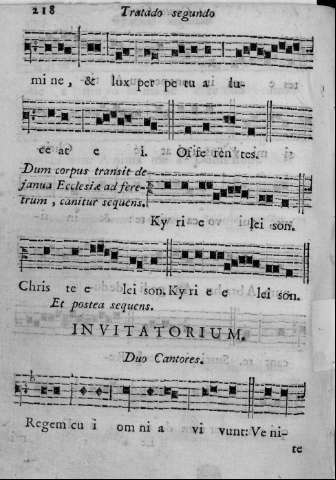 218 Tratado segundo
mi ne, & lux per pe tu a lu-
ce at e i. Of fe ren tes.
Dum corpus transit de
janua Ecclesiæ ad fere-
trum, canitur sequens.
Ky ri e lei son.
Chris te e lei son. Ky ri e e lei son.
Et postea sequens.
INVITATORIUM.
Duo Cantores.
Regem cu i om ni a vi vunt: Ve ni-
te